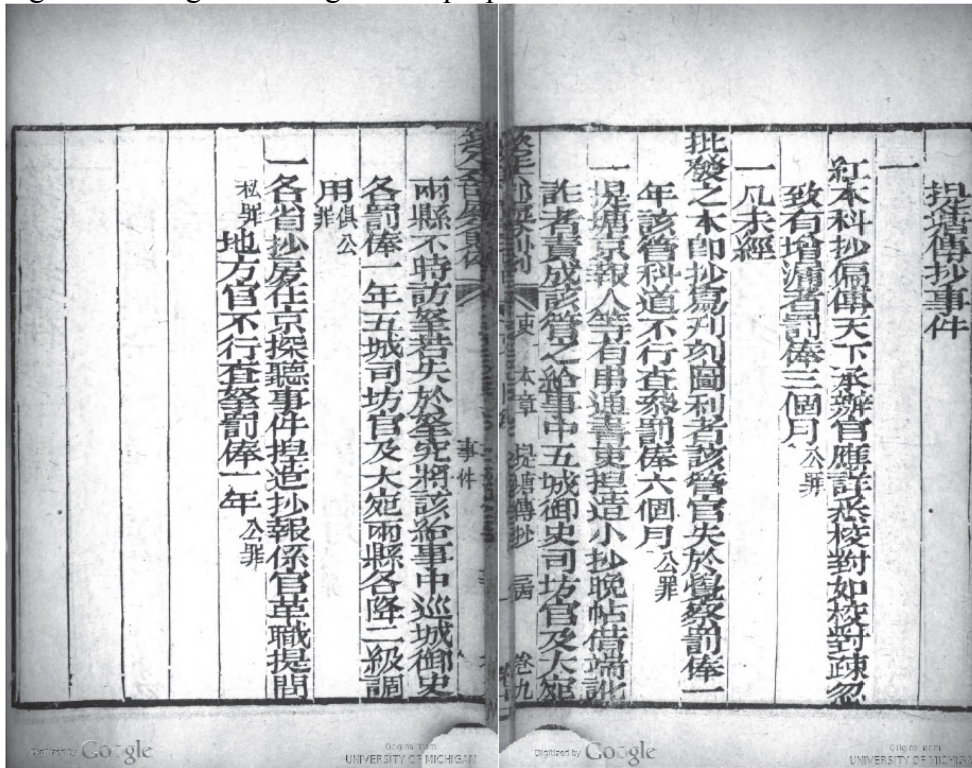 提塘傳抄事件
一
紅本科抄偏傳天下承辦官應詳悉校對如校對疎忽
致有增漏者罰俸三個月公罪
一凡未經
批發之本即抄寫刊刻圖利者該管官失於覺察罰俸一
年該管科道不行查叅罰俸六個月公罪
一提塘京報人等有串通書吏揑造小抄晚帖借端訛
詐者責成該管之給事中五城御史司坊官及大宛
吏 本章 提塘傳抄 卷九
事件
兩縣不時訪拏若失於拏究將該給事中巡城御史
各罰俸一年五城司坊官及大宛兩縣各降二級調
用俱公罪
一各省抄房在京探聽事件揑造抄報係官革職提問
私罪地方官不行查拏罰俸一年公罪
Digitized by Google
Original from
UNIVERSITY OF MICHIGAN
Digitized by Google
Original from
UNIVERSITY OF MICHIGAN